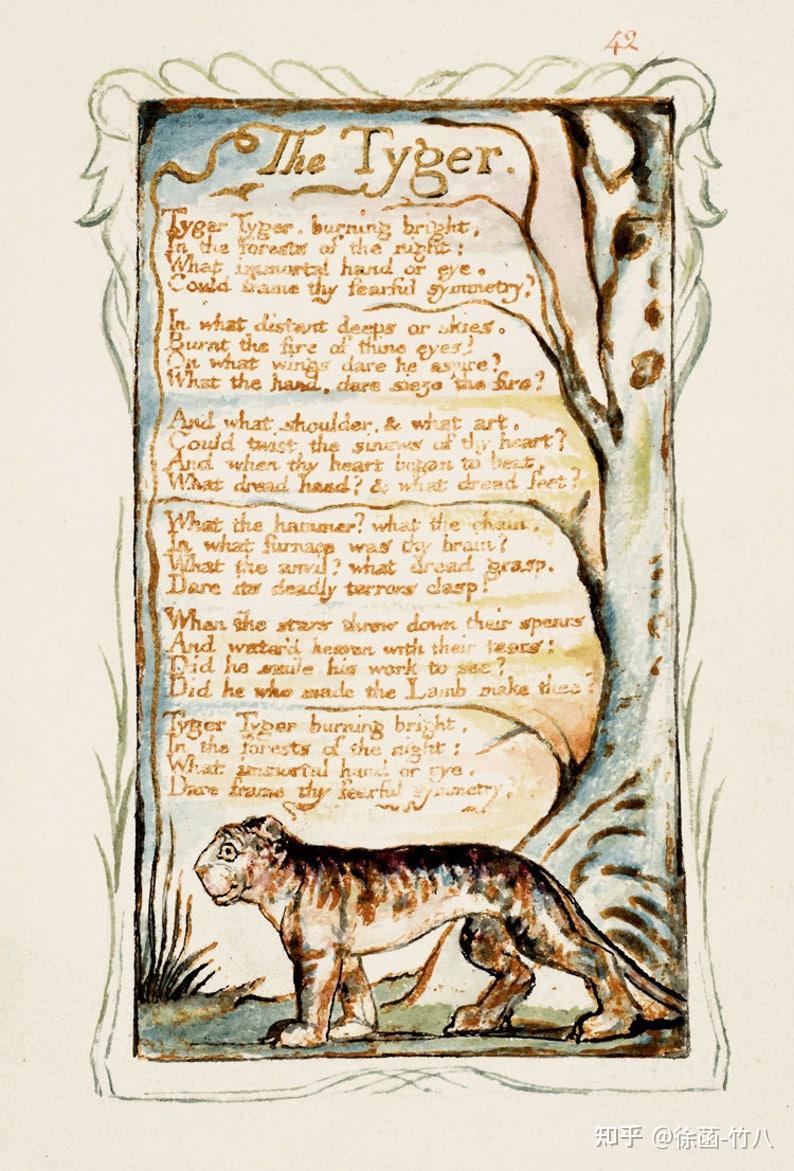 42
The Tyger.
Tyger Tyger. burning bright,
In the forests of the night:
What immortal hand or eye.
Could frame thy fearful symmetry?
In what distant deeps or skies.
Burnt the fire of thine eyes?
On what wings dare he aspire?
What the hand, dare sieze the fire?
And what shoulder, & what art,
Could twist the sinews of thy heart?
And when thy heart began to beat,
What dread hand? & what dread feet?
What the hammer? what the chain,
In what furnace was thy brain?
What the anvil? what dread grasp.
Dare its deadly terrors clasp!
When the stars threw down their spears
And water'd heaven with their tears:
Did he smile his work to see?
Did he who made the Lamb make thee?
Tyger Tyger burning bright,
In the forests of the night:
What immortal hand or eye,
Dare frame thy fearful symmetry?
知乎 @徐菡-竹八